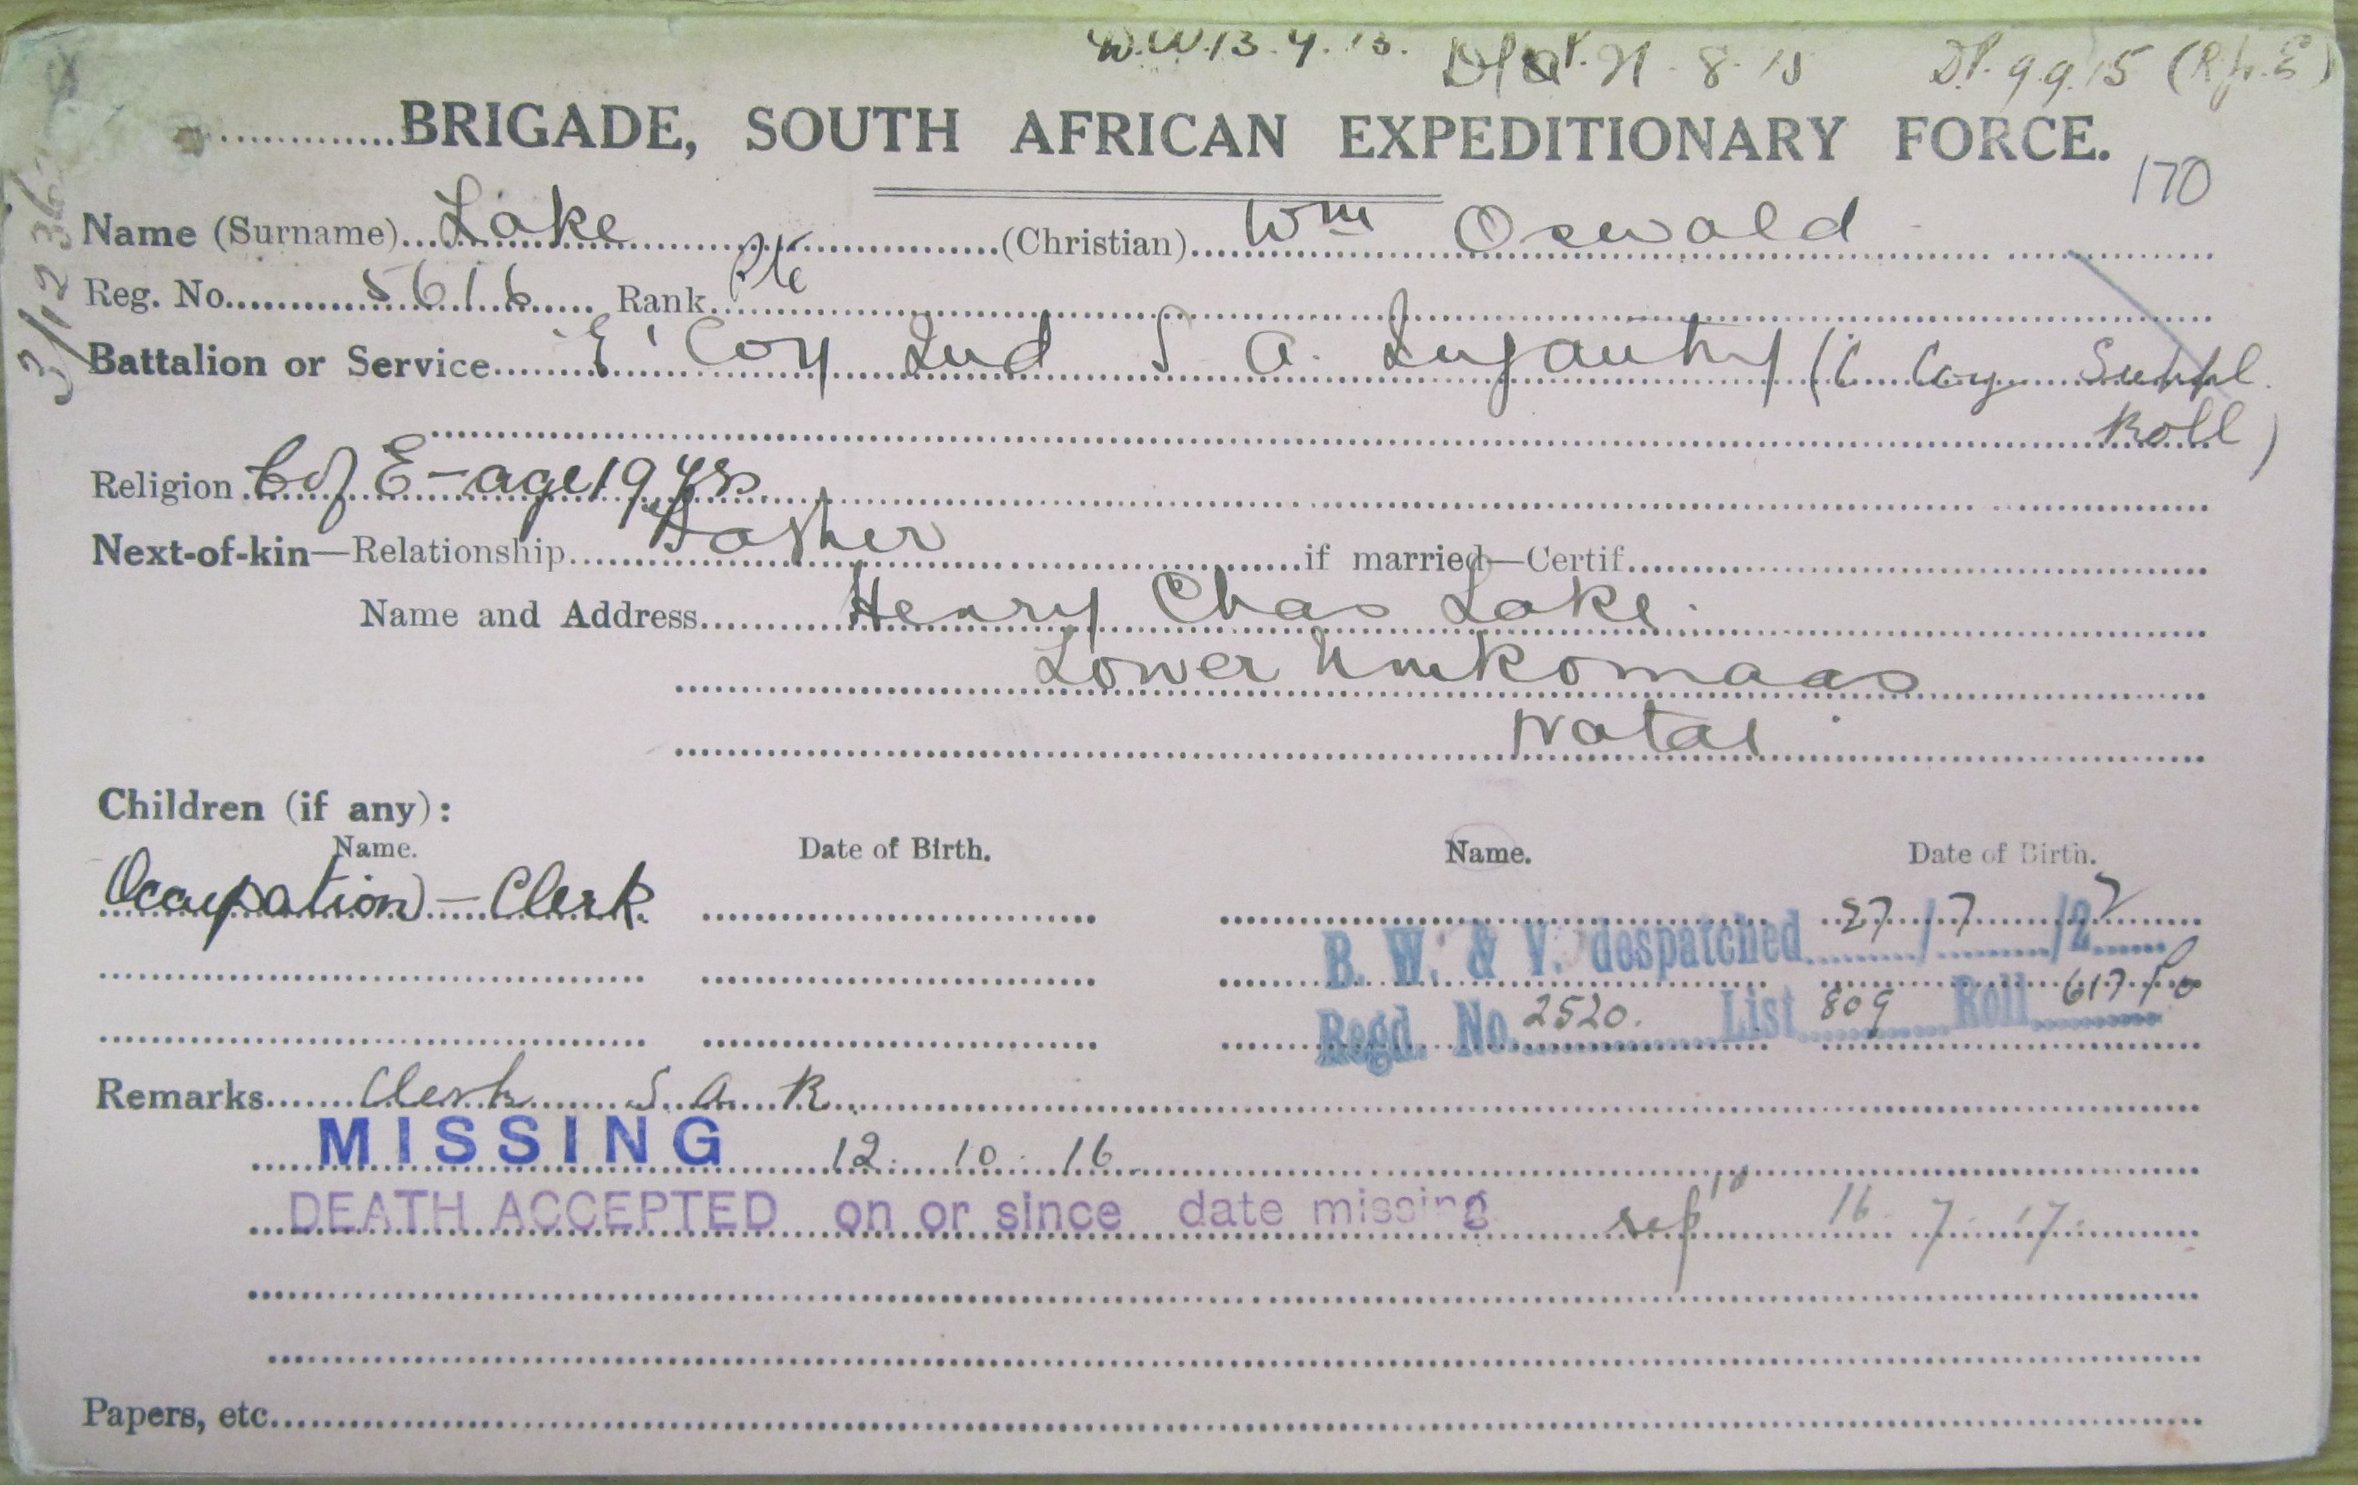 8. 15
9.9.15
BRIGADE, SOUTH AFRICAN EXPEDITIONARY FORCE.
170
Name (Surname) Lake (Christian) Wm Oswald
Reg. No. 5616 Rank Pte
Battalion or Service 'E' Coy 2nd S A. Infantry (C Coy Suppl.
Roll)
Religion C of E - age 19 yrs.
Next-of-kin—Relationship Father if married—Certif
Name and Address Henry Chas Lake.
Lower Umkomaas
Natal.
Children (if any):
Name. Date of Birth. Name. Date of Birth.
Occupation - Clerk
B. W. & V. despatched 27/7/22
Regd. No. 2520. List 809 Roll
Remarks Clerk S A R
MISSING 12. 10. 16
DEATH ACCEPTED on or since date missing 16. 7. 17.
Papers, etc.